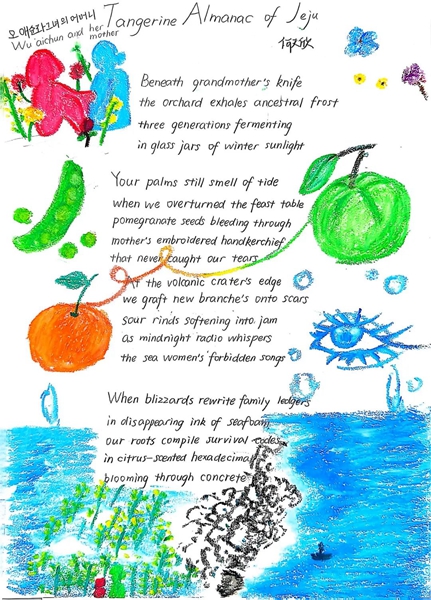 오애순과 그녀의 어머니
Tangerine Almanac of Jeju
Wu aichun and her mother
Beneath grandmother's knife
the orchard exhales ancestral frost
three generations fermenting
in glass jars of winter sunlight
Your palms still smell of tide
when we overturned the feast table
pomegranate seeds bleeding through
mother's embroidered handkerchief
that never caught our tears
At the volcanic crater's edge
we graft new branche's onto scars
sour rinds softening into jam
as mindnight radio whispers
the sea women's forbidden songs
When blizzards rewrite family ledgers
in disappearing ink of seafoam
our roots compile survival codes
in citrus-scented hexadecimal
blooming through concrete